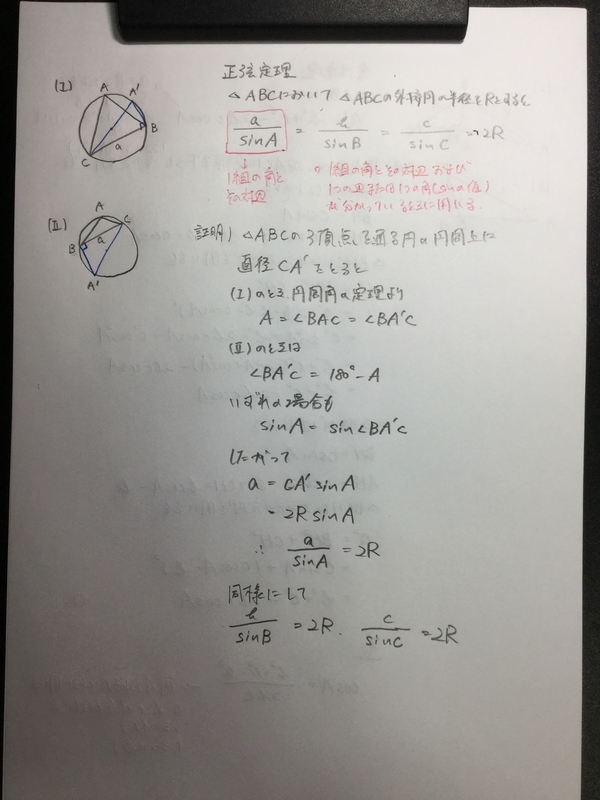 正弦定理
△ABCにおいて △ABCの外接円の半径をRとすると
a/sinA = b/sinB = c/sinC = 2R
↓
1組の角と
その対辺
○ 1組の角とその対辺および
1つの辺または1つの角(sinの値)
が分かっているときに用いる
(I)
A A' B C a
(II)
A C B a A'
証明) △ABCの3頂点を通る円の円周上に
直径CA'をとると
(I)のとき、円周角の定理より
A = ∠BAC = ∠BA'C
(II)のときは
∠BA'C = 180° - A
いずれの場合も
sinA = sin∠BA'C
したがって
a = CA' sinA
= 2R sinA
∴ a/sinA = 2R
同様にして
b/sinB = 2R. c/sinC = 2R